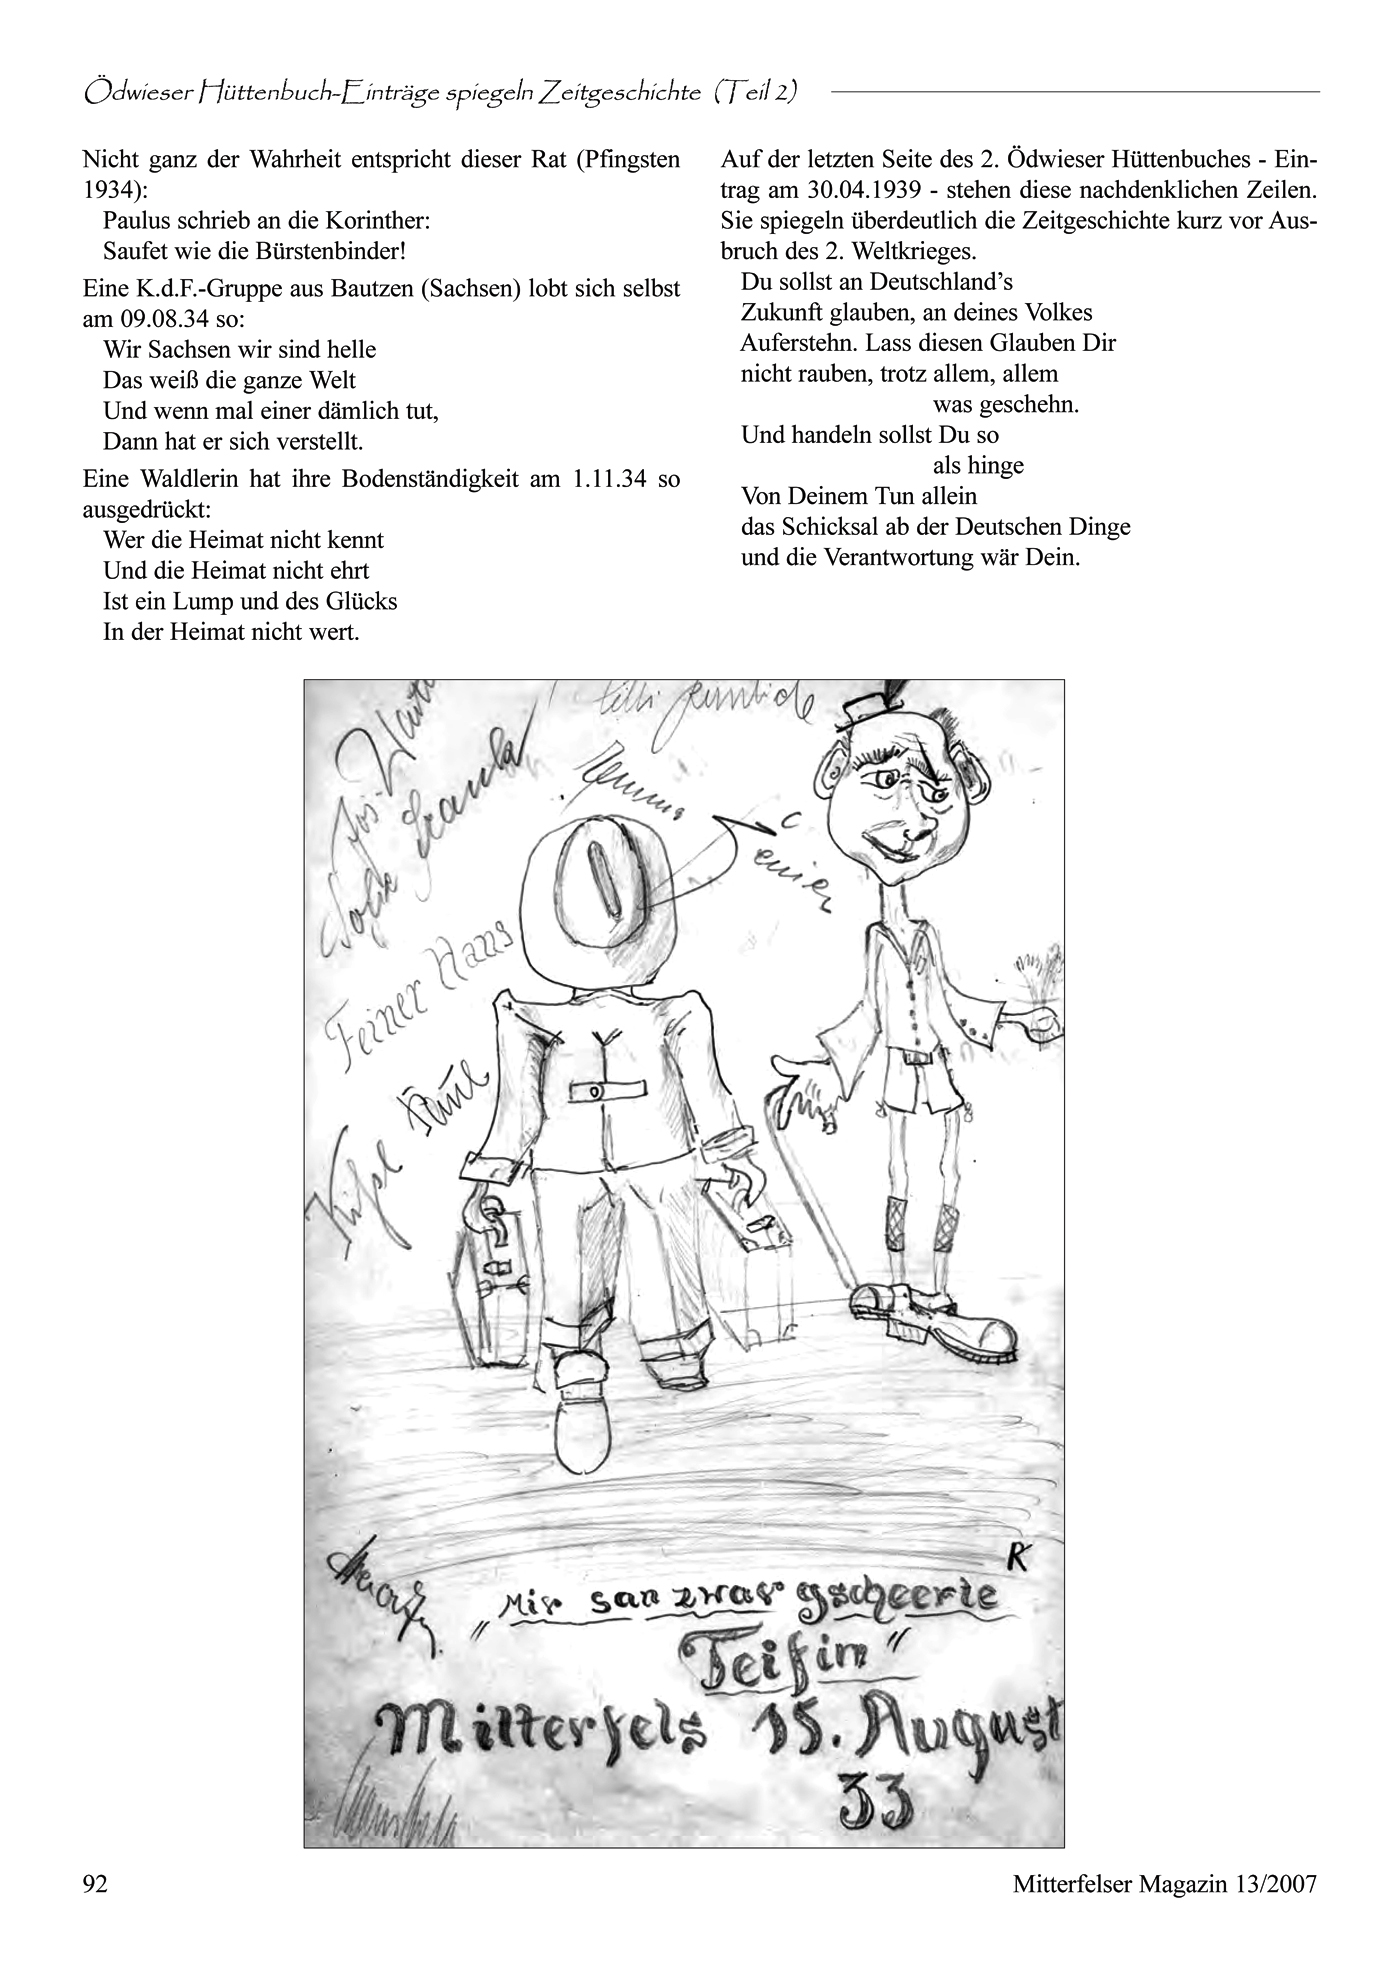 Ödwieser Hüttenbuch-Einträge spiegeln Zeitgeschichte (Teil 2)
Nicht ganz der Wahrheit entspricht dieser Rat (Pfingsten
1934):
Paulus schrieb an die Korinther:
Saufet wie die Bürstenbinder!
Eine K.d.F.-Gruppe aus Bautzen (Sachsen) lobt sich selbst
am 09.08.34 so:
Wir Sachsen wir sind helle
Das weiß die ganze Welt
Und wenn mal einer dämlich tut,
Dann hat er sich verstellt.
Eine Waldlerin hat ihre Bodenständigkeit am 1.11.34 so
ausgedrückt:
Wer die Heimat nicht kennt
Und die Heimat nicht ehrt
Ist ein Lump und des Glücks
In der Heimat nicht wert.
Auf der letzten Seite des 2. Ödwieser Hüttenbuches - Ein-
trag am 30.04.1939 - stehen diese nachdenklichen Zeilen.
Sie spiegeln überdeutlich die Zeitgeschichte kurz vor Aus-
bruch des 2. Weltkrieges.
Du sollst an Deutschland’s
Zukunft glauben, an deines Volkes
Auferstehn. Lass diesen Glauben Dir
nicht rauben, trotz allem, allem
was geschehn.
Und handeln sollst Du so
als hinge
Von Deinem Tun allein
das Schicksal ab der Deutschen Dinge
und die Verantwortung wär Dein.
Feiner Hans
R
„Mir san zwar gscheerte
Teifin"
Mitterfels 15. August
33
92
Mitterfelser Magazin 13/2007